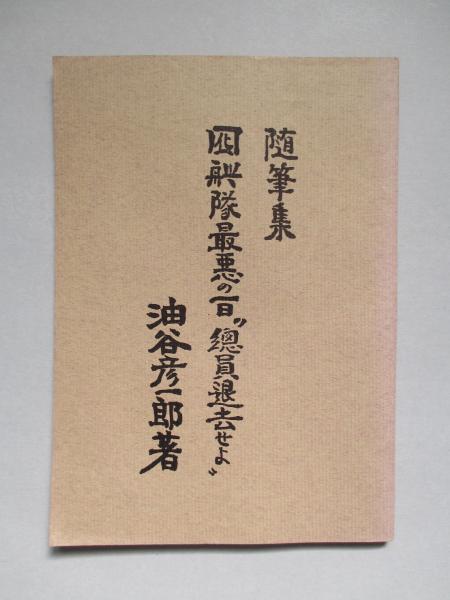 随筆集
囮艦隊最悪の一日〝總員退去せよ〟
油谷彦一郎著